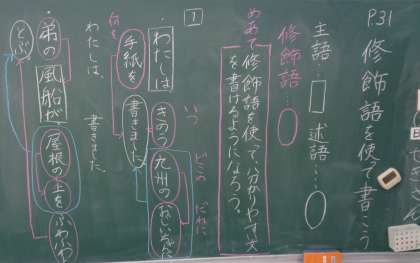 P31
修飾語を使って書こう
主語…□ 述語…○
修飾語…○
めあて 修飾語を使って、分かりやすい文
を書けるようになろう。
1
いつ どこの だれに
わたしは きのう 九州の
何を
手紙を 書きました。
わたしは、 書きました。
弟の 風船が 屋根の上を ふわふわ
とぶ